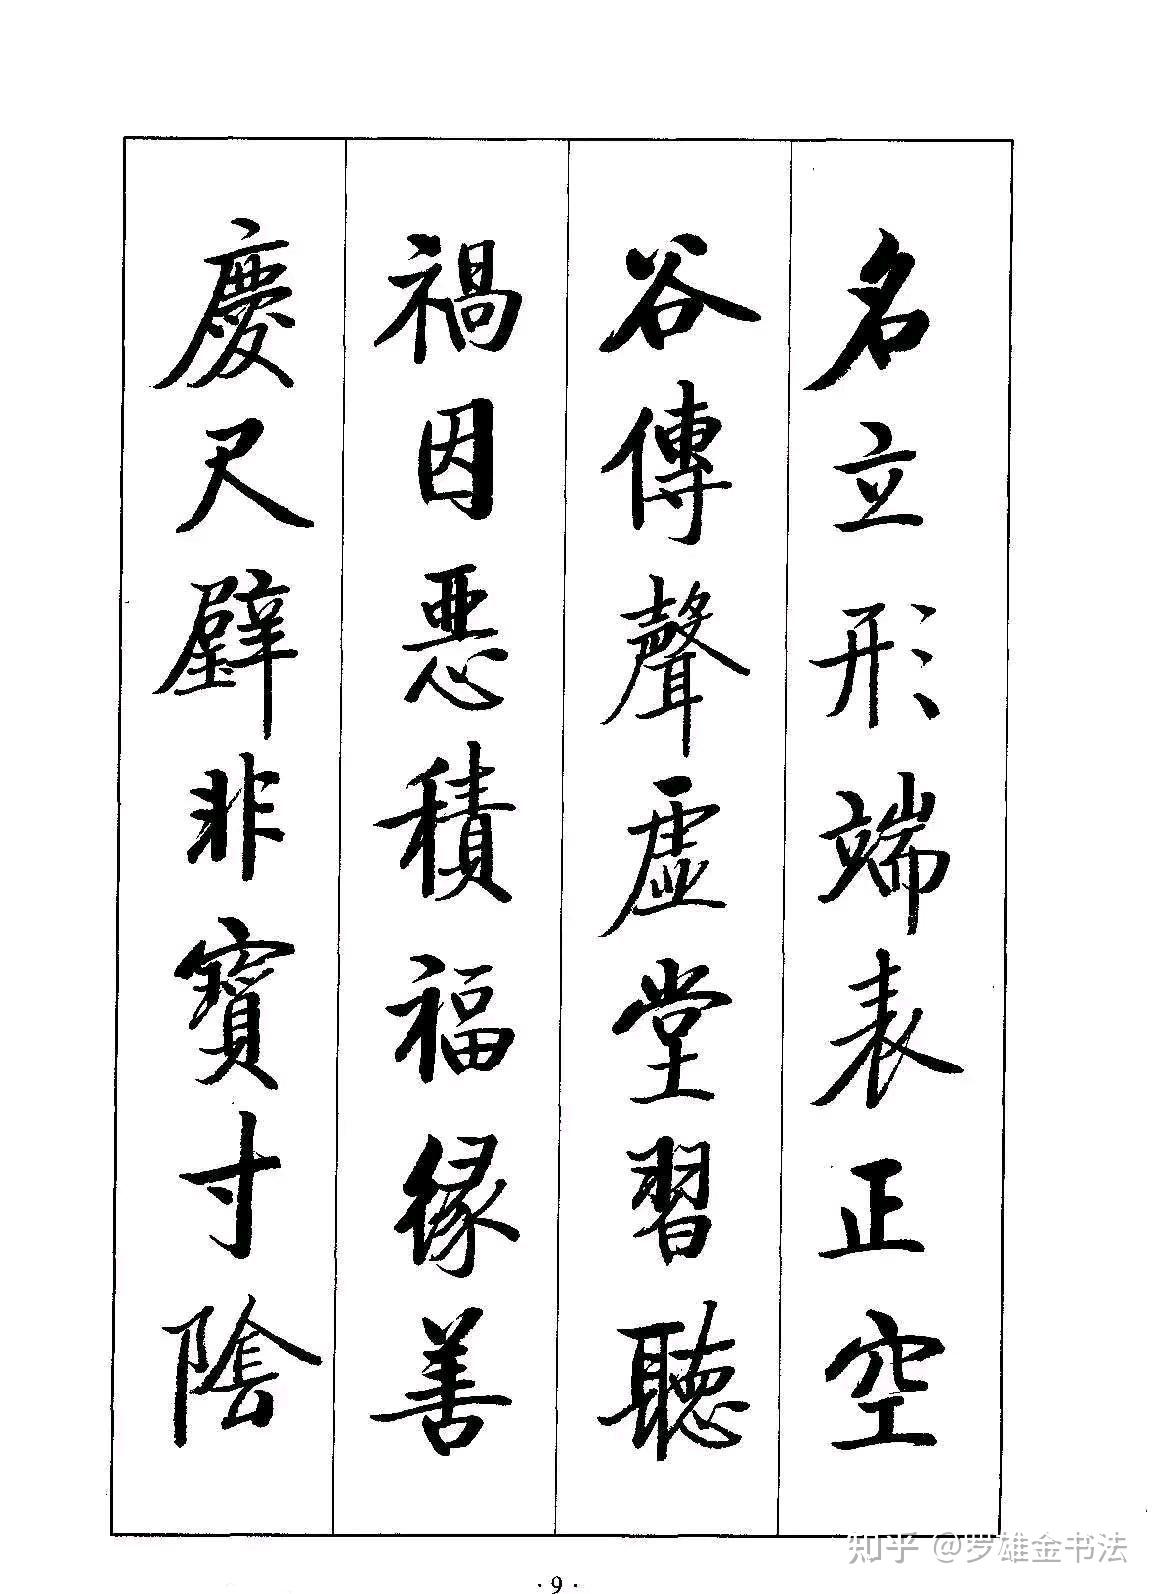 名立形端表正空
谷傳聲虛堂習聽
禍因惡積福緣善
慶尺璧非寶寸陰
·9·
知乎 @罗雄金书法